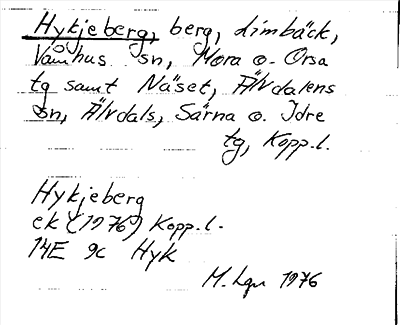 Hykjeberg, berg, Limbäck,
Våmhus sn, Mora o. Orsa
tg samt Näset, Älvdalens
sn, Älvdals, Särna o. Idre
tg, Kopp.l.
Hykjeberg
ek (1976) Kopp.l.
14E 9c Hyk
M. Lgn 1976